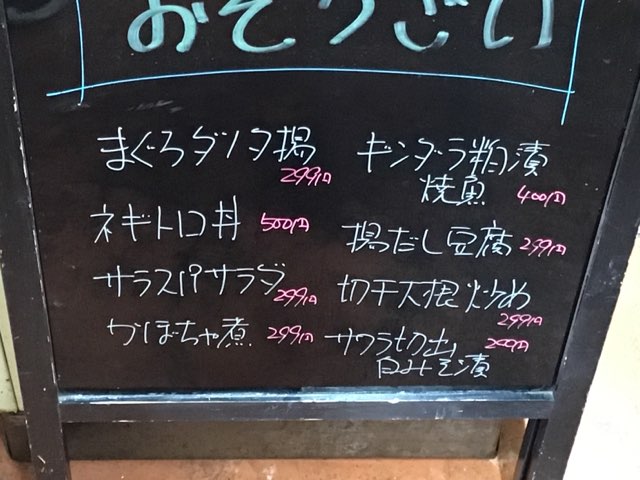 おそうざい
まぐろタツタ揚
299円
ネギトロ丼 500円
サラスパサラダ
299円
かぼちゃ煮 299円
ギンダラ粕漬
焼魚 400円
揚だし豆腐 299円
切干大根炒め
299円
サワラ切出し 299円
白みそ漬